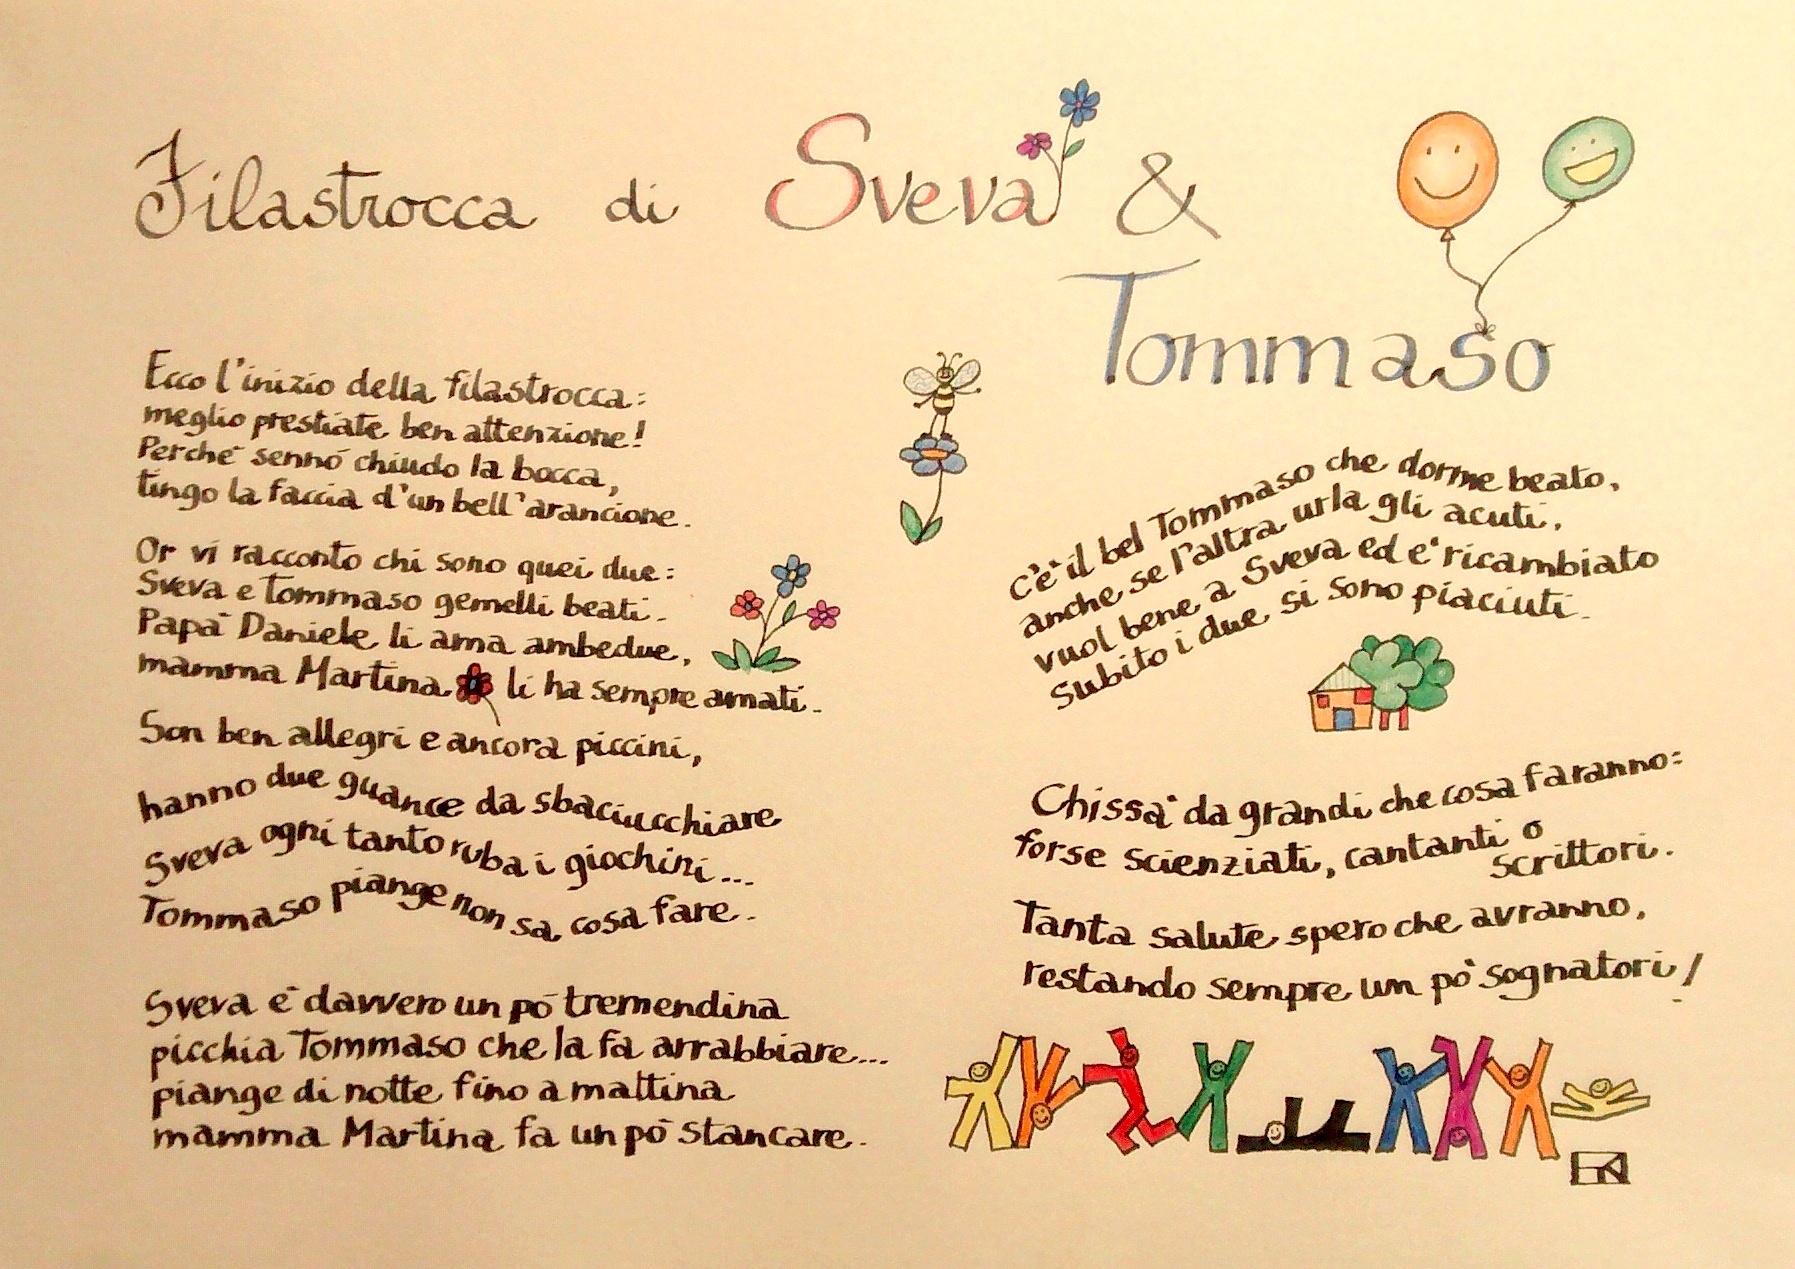 Filastrocca di Sveva &
Tommaso
Ecco l'inizio della filastrocca:
meglio prestiate ben attenzione!
Perché sennó chiudo la bocca,
tingo la faccia d'un bell'arancione.
Or vi racconto chi sono quei due:
Sveva e Tommaso gemelli beati.
Papà Daniele li ama ambedue,
mamma Martina li ha sempre amati.
Son ben allegri e ancora piccini,
hanno due guance da sbaciucchiare
Sveva ogni tanto ruba i giochini...
Tommaso piange non sa cosa fare.
Sveva é davvero un pó tremendina
picchia Tommaso che la fa arrabbiare...
piange di notte fino a mattina
mamma Martina fa un pó stancare.
c'è il bel Tommaso che dorme beato,
anche se l'altra urla gli acuti,
vuol bene a Sveva ed e' ricambiato
subito i due si sono piaciuti.
Chissà da grandi che cosa faranno:
forse scienziati, cantanti o
scrittori.
Tanta salute spero che avranno,
restando sempre un pò sognatori!